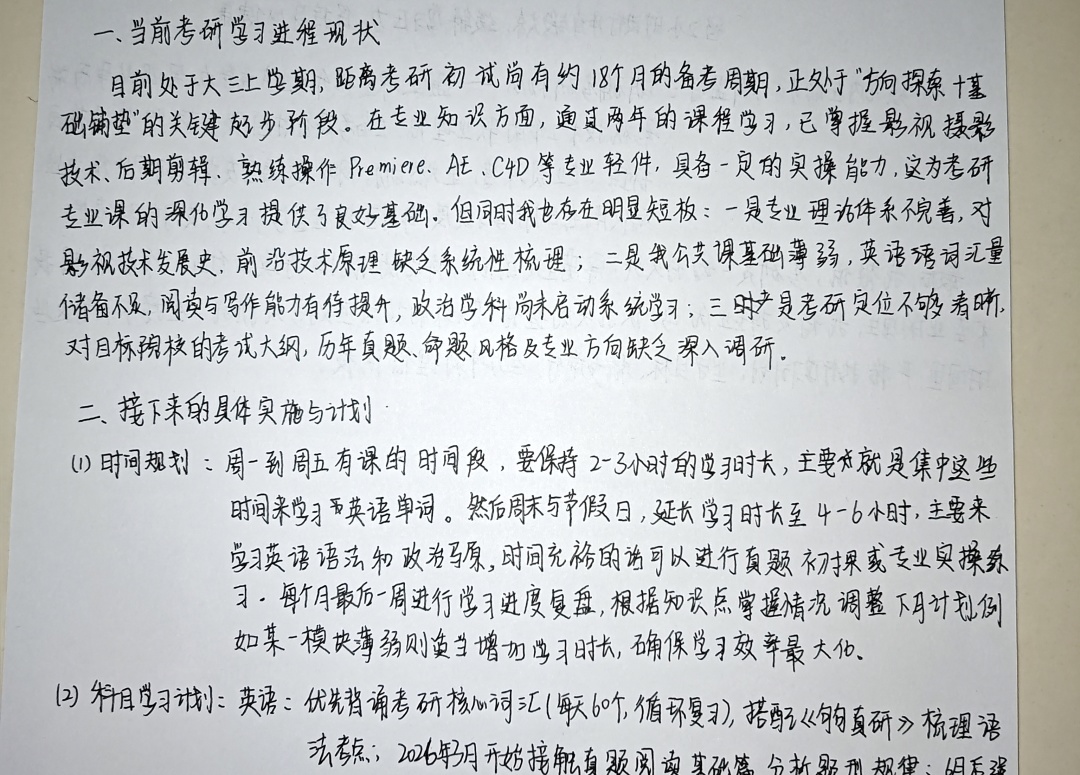 一、当前考研学习进程现状
目前处于大三上学期,距离考研初试尚有约18个月的备考周期,正处于"方向探索+基
础铺垫"的关键起步阶段。在专业知识方面,通过两年的课程学习,已掌握影视摄影
技术、后期剪辑、熟练操作Premiere、AE、C4D等专业软件,具备一定的实操能力,这为考研
专业课的深化学习提供了良好基础。但同时我也存在明显短板:一是专业理论体系不完善,对
影视技术发展史、前沿技术原理缺乏系统性梳理;二是我公共课基础薄弱,英语语词汇量
储备不足,阅读与写作能力有待提升,政治学科尚未启动系统学习;三是考研定位不够清晰,
对目标院校的考试大纲,历年真题、命题风格及专业方向缺乏深入调研。
二、接下来的具体实施与计划
(1)时间规划:周一到周五有课的时间段,要保持2-3小时的学习时长,主要就是集中这些
时间来学习英语单词。然后周末与节假日,延长学习时长至4-6小时,主要来
学习英语语法和政治马原,时间充裕的话可以进行真题初探或专业实操练
习。每个月最后一周进行学习进度复盘,根据知识点掌握情况调整下月计划例
如某一模块薄弱则适当增加学习时长,确保学习效率最大化。
(2)科目学习计划:英语:优先背诵考研核心词汇(每天60个,循环复习),搭配《句句真研》梳理语
法考点;2026年3月开始接触真题阅读基础篇,分析题型规律;6月后